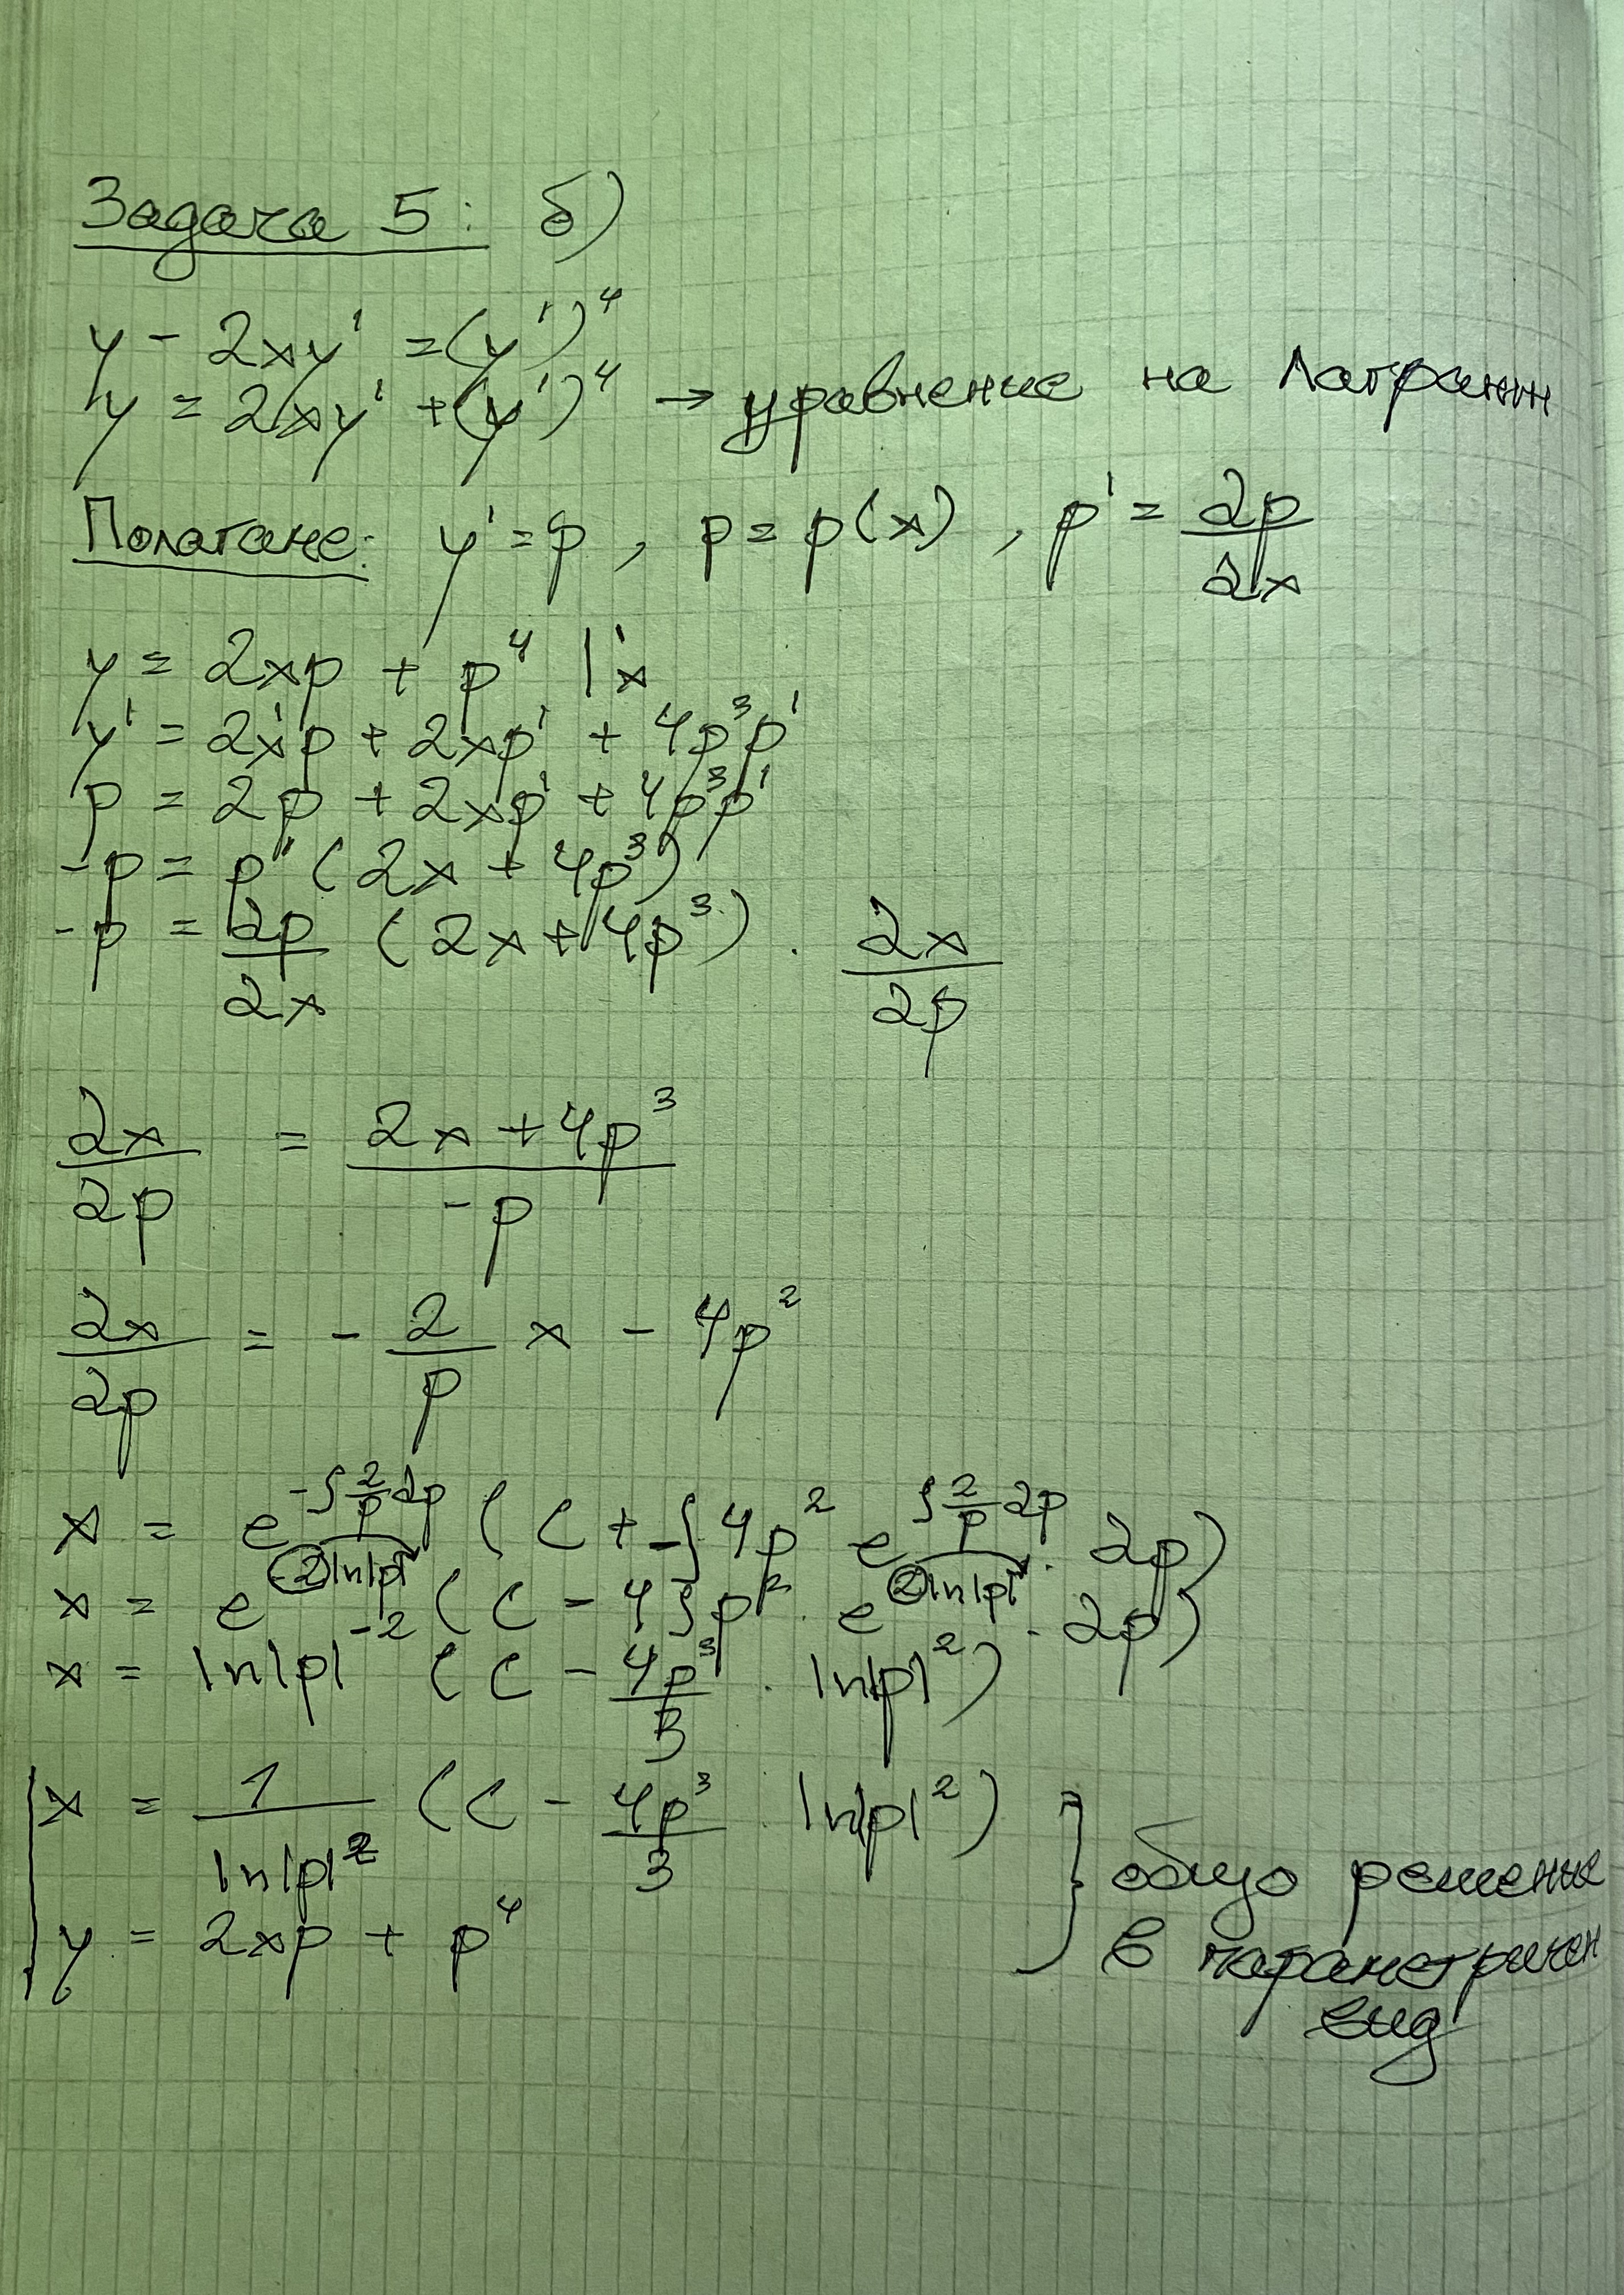 Задача 5: б)
y - 2xy' = (y')⁴
y = 2xy' + (y')⁴ → уравнение на Лагранж
Полагаме: y' = p , p = p(x) , p' = dp/dx
y = 2xp + p⁴ |'x
y' = 2x'p + 2xp' + 4p³p'
p = 2p + 2xp' + 4p³p'
-p = p' (2x + 4p³)
-p = dp/dx (2x + 4p³) . dx/dp
dx/dp = (2x + 4p³)/(-p)
dx/dp = - 2/p x - 4p²
x = e^(-∫ 2/p dp) (C + -∫ 4p² e^(∫ 2/p dp) . dp)
x = e^(-2ln|p|) (C - 4∫p² . e^(2ln|p|) . dp)
x = ln|p|⁻² (C - 4p³/3 . ln|p|²)
x = 1/ln|p|² (C - 4p³/3 . ln|p|²)
y = 2xp + p⁴
} общо решение
в параметричен
вид